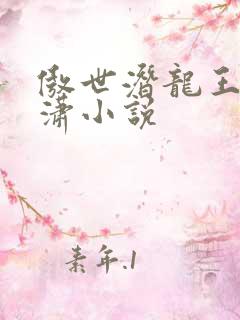 傲世潛龍王
潇小説
素年.1